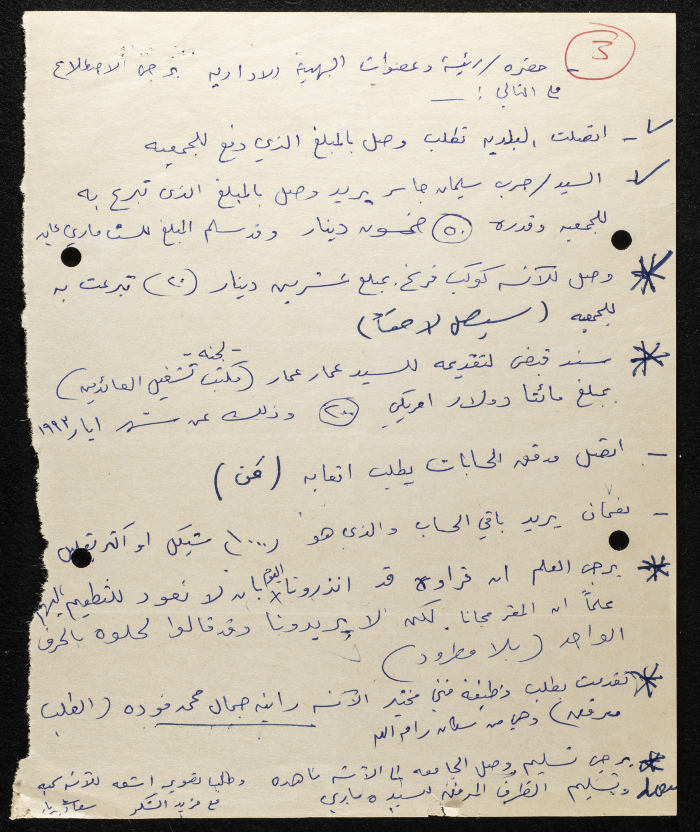 3
- حضرة / رئيسة وعضوات الهيئة الادارية يرجى الاطلاع
على التالي : ــ
- اتصلت البلديه تطلب وصل بالمبلغ الذي دفع للجمعيه
السيد / حرب سليمان جاسر يريد وصل بالمبلغ الذي تبرع به
للجمعيه وقدره (٥٠) خمسون دينار وقد سلم المبلغ للست ماري
وصل للآنسه كوكب فرنخ بمبلغ عشرين دينار (٢٠) تبرعت به
للجمعيه (سيصل لاحقاً)
- لجنه -
سند قبض لتقديمه للسيد عمار عمار (مكتب تشغيل العائدين)
بمبلغ مائتا دولار امريكي (٢٠٠) وذلك عن شهر ايار ١٩٩٣
- اتصل مدقق الحسابات يطلب اتعابه
- نعمان يريد باقي الحساب والذي هو (١٠٠٠) شيكل او اكثر بقليل
يرجى العلم ان قراوه قد انذرونا اليوم بان لا نعود للتطعيم اليهم
علماً ان المقر مجانا. لكن لا يريدونا وقد قالوا لحلوه بالحرف
الواحد (بلا مطرود)
تقدمت بطلب وظيفة فني مختبر الآنسه رانيه جمال محمد فوده (الطلب
مرفق) وهي من سكان رام الله
يرجى تسليم وصل الجامعه الى الآنسه ناهده وطلب تصوير اشعه للآنسه
وتسليم الظرف المرفق للسيده ماري مع مزيد الشكر